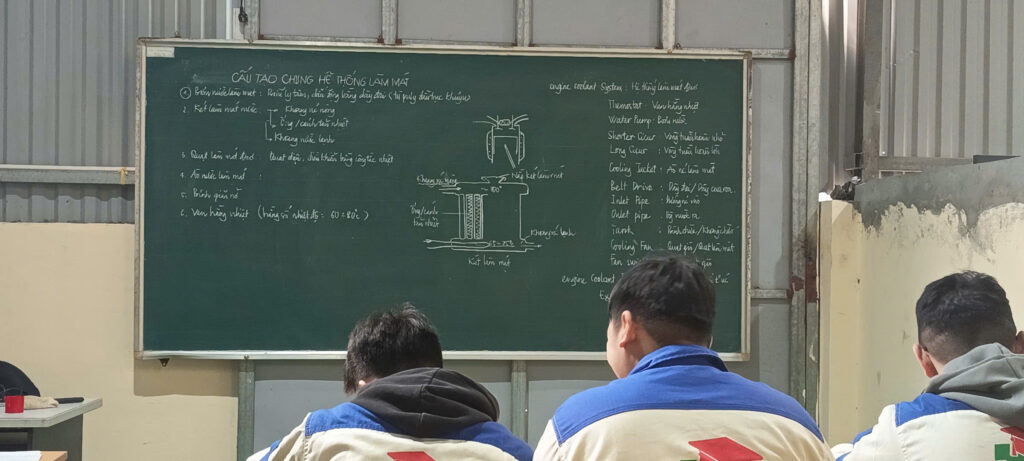 CẤU TẠO CHUNG HỆ THỐNG LÀM MÁT
1 Bơm nước làm mát : Kiểu ly tâm, dẫn động bằng dây đai
2. Két làm mát nước :
Khoang nc nóng
Ống / cánh tản nhiệt
Khoang nước lạnh
3. Quạt làm mát Quạt điện, điều khiển bằng công tắc nhiệt
4. Áo nước làm mát :
5. Bình giãn nở
6. Van hằng nhiệt (hằng số nhiệt độ = 60 ÷ 80°c)
Nắp két làm mát
Khoang nc nóng
Ống/cánh
tản nhiệt
Khoang nc lạnh
Két làm mát
engine coolant System : Hệ thống làm mát
Themostat - Van hằng nhiệt
Water Pump : Bơm nước
Shorter Cicur : Vòng tuần hoàn nhỏ
Long Cicur : Vòng tuần hoàn lớn
Cooling Jacket : Áo nc làm mát
Belt Drive : Dây đai / Dây curoa
Inlet Pipe : Đường nc vào
Outlet pipe : nước ra
Tank :
Cooling Fan : Quạt gió / Quạt làm mát
Fan
engine Coolant